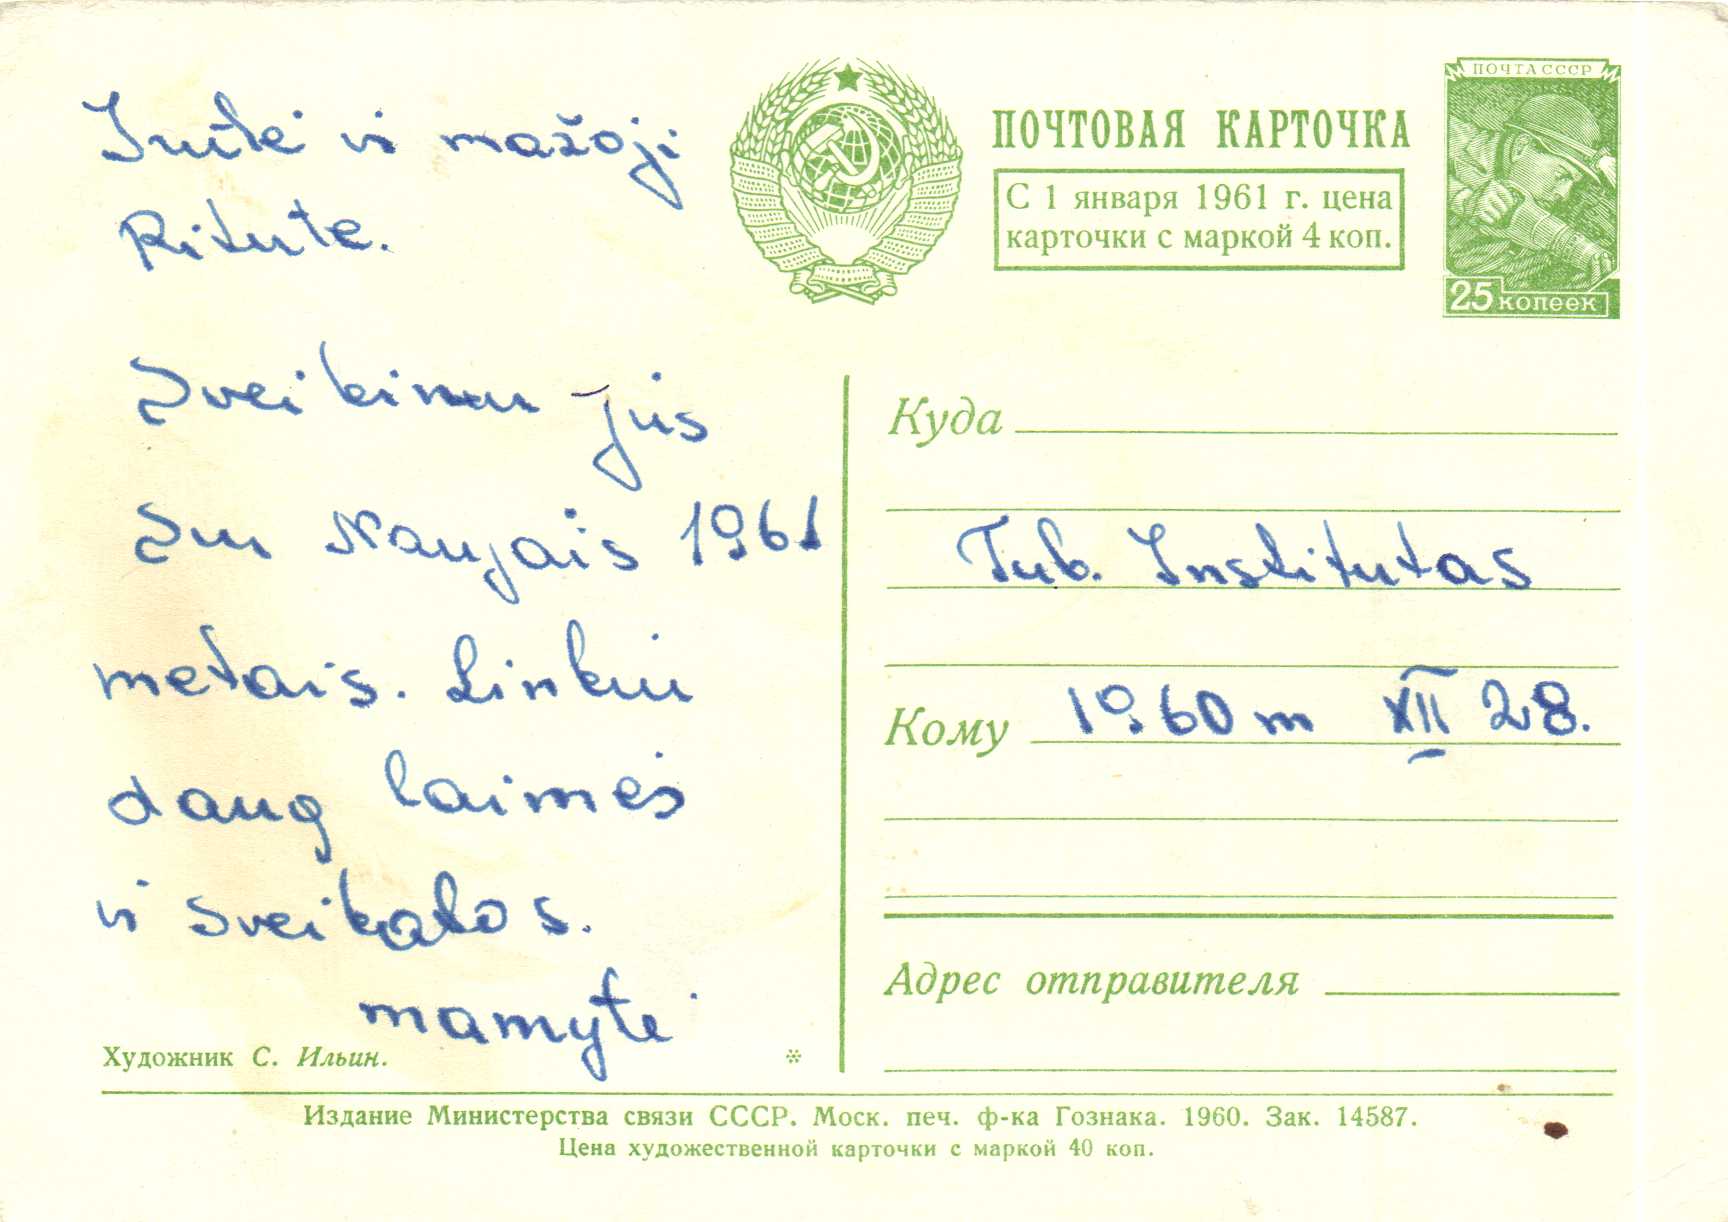 Irutė ir mažoji
Ritute.
Sveikinu jus
su Naujais 1961
metais. Linkiu
daug laimės
ir sveikatos.
mamytė
Художник С. Ильин.
*
ПОЧТОВАЯ КАРТОЧКА
С 1 января 1961 г. цена
карточки с маркой 4 коп.
ПОЧТА СССР
25 копеек
Куда
Tub. Institutas
Кому 1960 m XII 28.
Адрес отправителя
Издание Министерства связи СССР. Моск. печ. ф-ка Гознака. 1960. Зак. 14587.
Цена художественной карточки с маркой 40 коп.